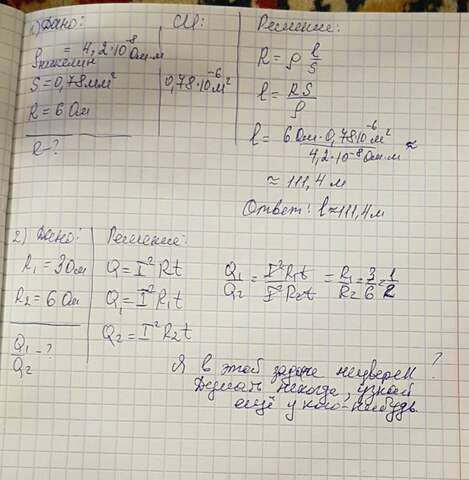 1) Дано:
СИ:
Решение:
ρникелин = 4,2·10⁻⁸ Ом·м
S = 0,78мм²
0,78·10⁻⁶м²
R = 6 Ом
l-?
R = ρ l/S
l = RS/ρ
l = 6 Ом·0,78·10⁻⁶м² / 4,2·10⁻⁸ Ом·м ≈
≈ 111,4 м
Ответ: l ≈ 111,4 м
2) Дано:
Решение:
R₁ = 3 Ом
R₂ = 6 Ом
Q₁/Q₂ - ?
Q = I²Rt
Q₁ = I²R₁t
Q₂ = I²R₂t
Q₁/Q₂ = I²R₁t/I²R₂t = R₁/R₂ = 3/6 = 1/2
Я в этой задаче неуверен ?
Думать некогда, узнай
ещё у кого-нибудь.